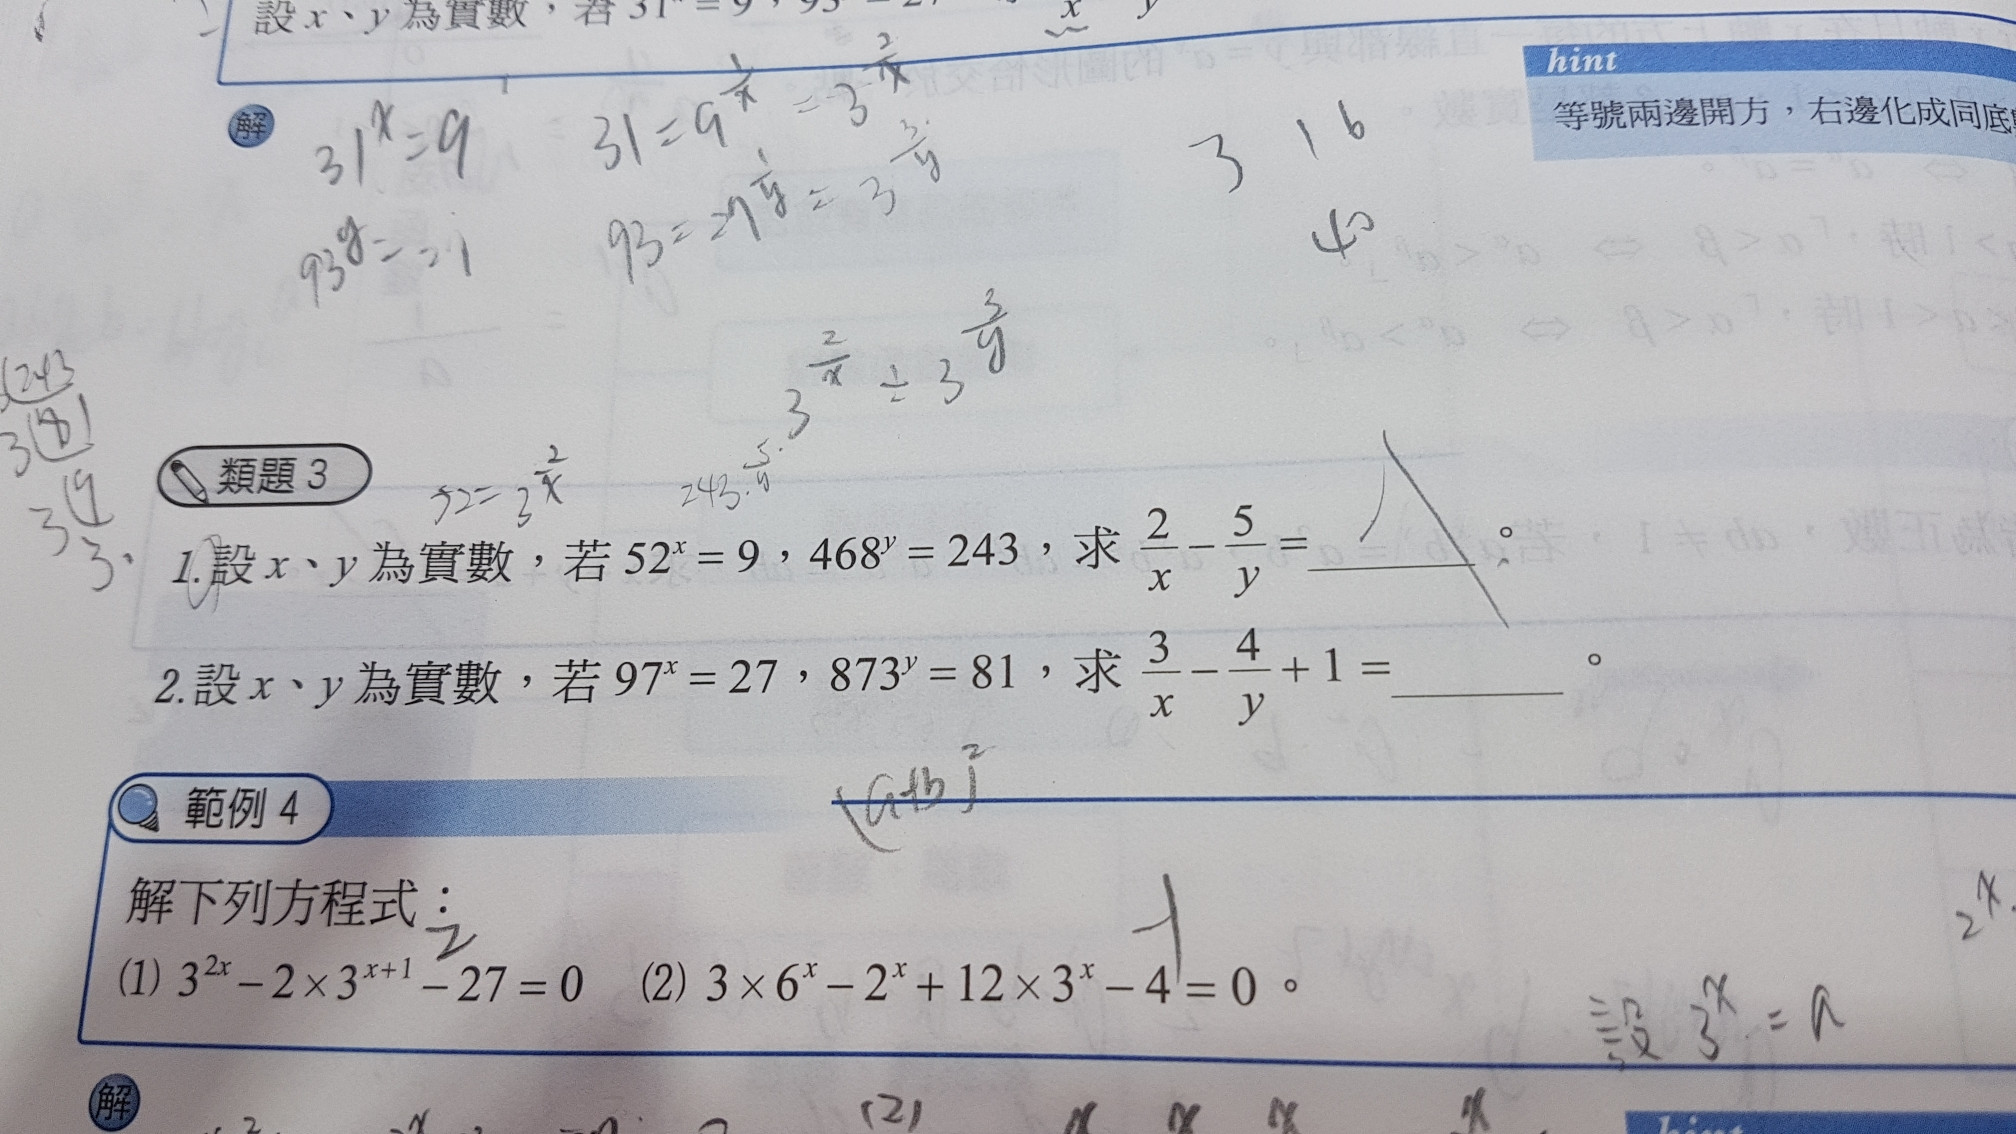 設 x、y 為實數，若 31ˣ = 9，93
x y
hint
等號兩邊開方，右邊化成同底
解
31ˣ=9 31=9^(1/x) =3^(2/x)
93^y= 93= =3^(3/y)
3 16
40
3^(2/x) ÷ 3^(3/y)
243
3 81
3 9
3
類題 3
52=3^(2/x) 243^(5/y)
1.設 x、y 為實數，若 52ˣ = 9，468ʸ = 243，求 2/x − 5/y = ______。
2.設 x、y 為實數，若 97ˣ = 27，873ʸ = 81，求 3/x − 4/y + 1 = ______。
(a+b)²
範例 4
解下列方程式：
2
(1) 3²ˣ − 2 × 3ˣ⁺¹ − 27 = 0 (2) 3 × 6ˣ − 2ˣ + 12 × 3ˣ − 4 = 0。
2ˣ
設 3ˣ = a
解
(2)
hint